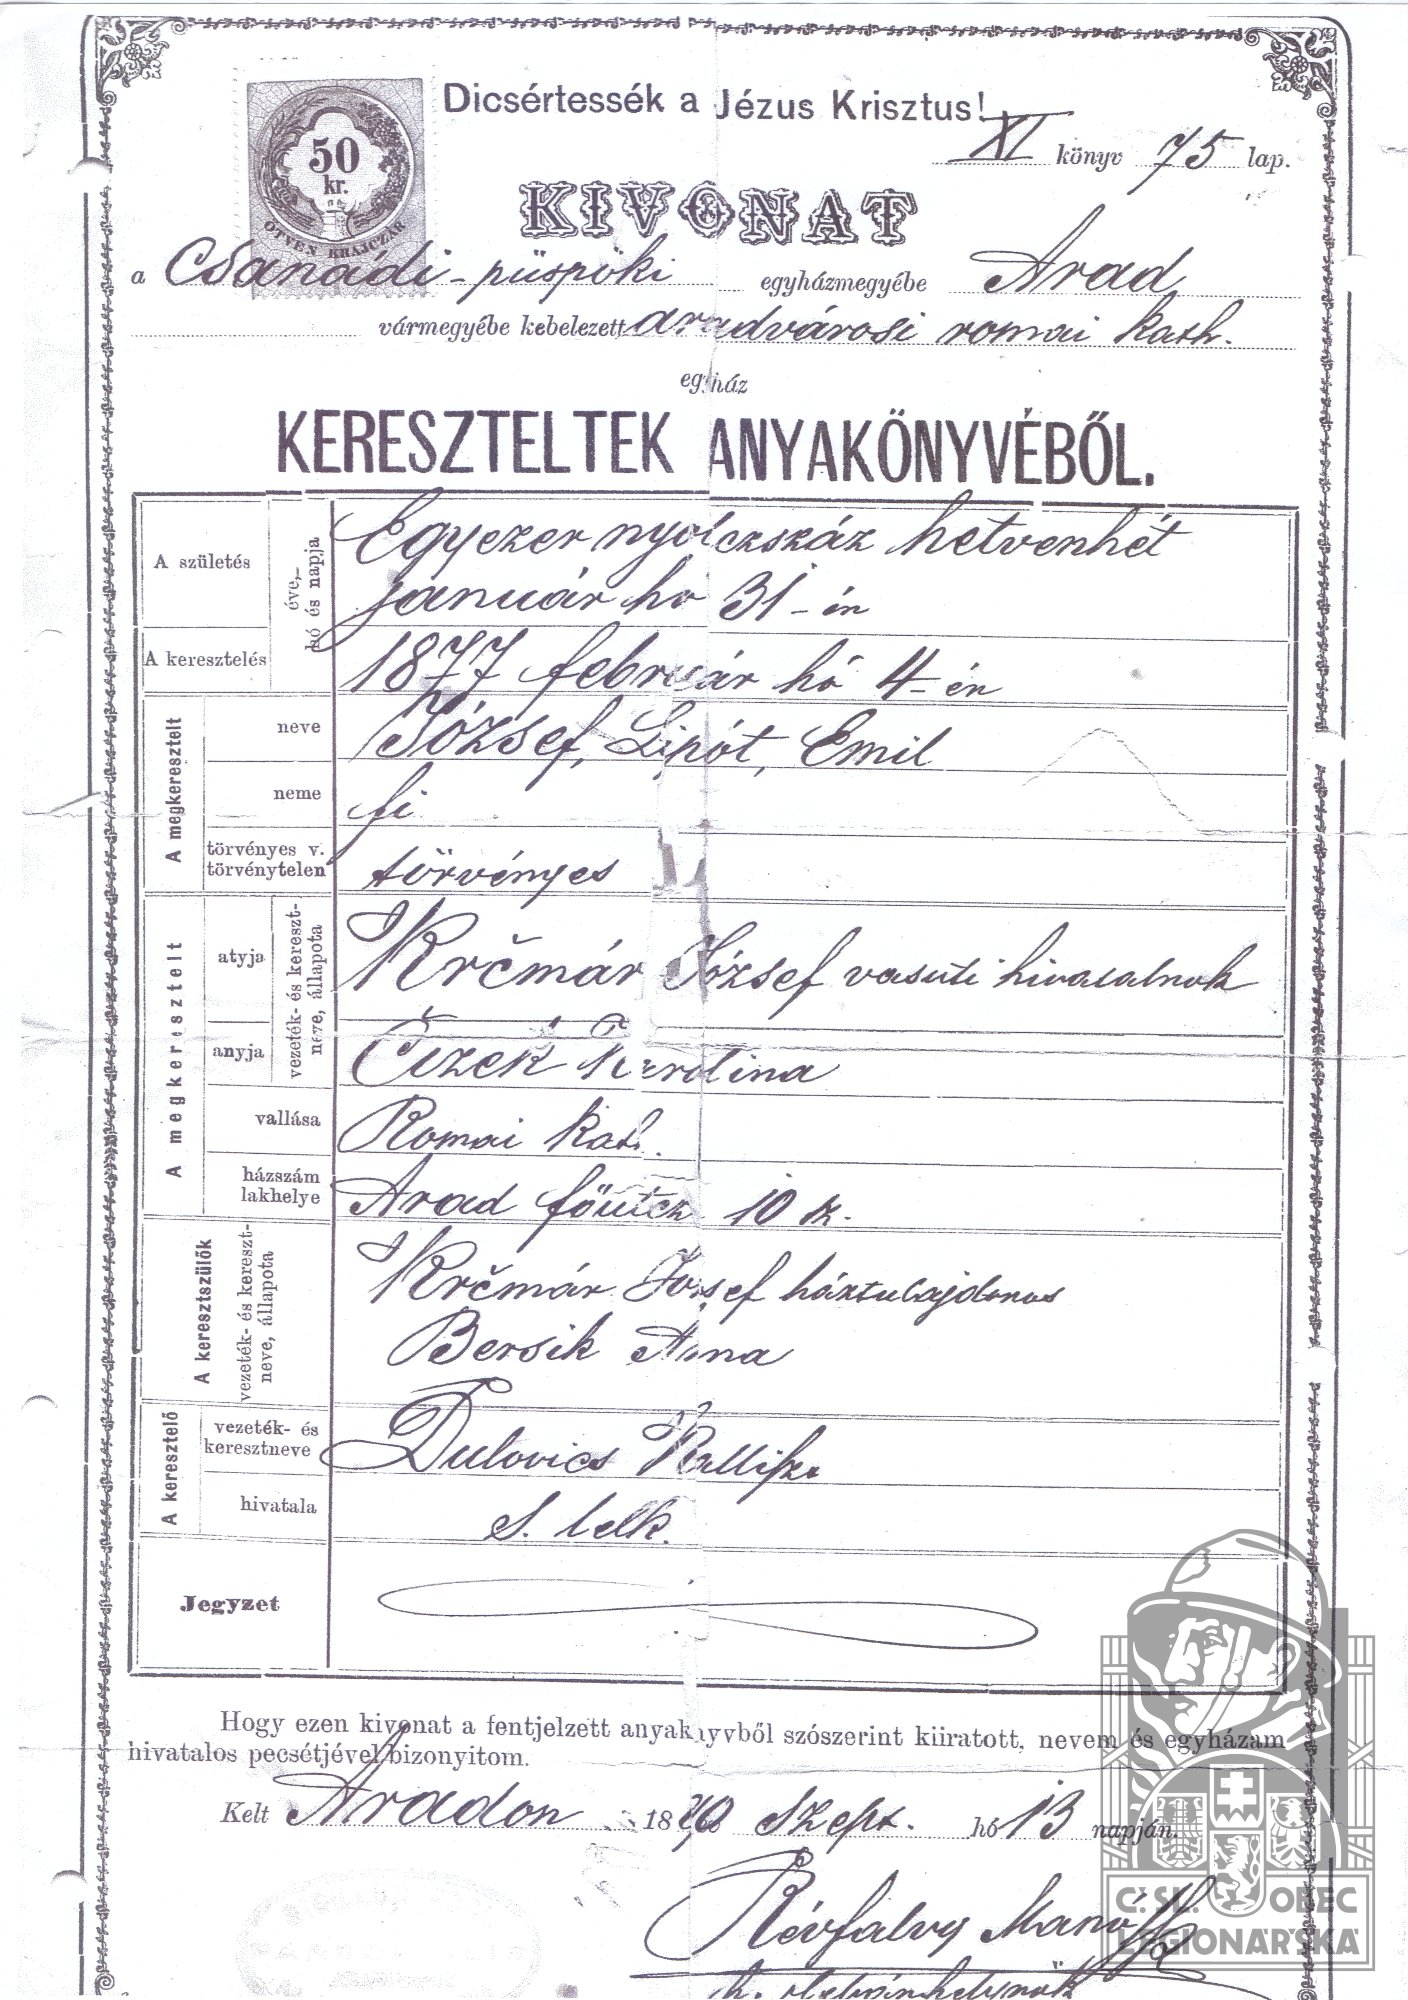 Dicsértessék a Jézus Krisztus!
50
kr.
ÖTVEN KRAJCZÁR
XI könyv 75 lap.
KIVONAT
a Csanádi-püspöki egyházmegyébe Arad
vármegyébe kebelezett aradvárosi romai kath.
egyház
KERESZTELTEK ANYAKÖNYVÉBŐL.
A születés éve, hó és napja Egyezer nyolczszáz hetvenhét
január hó 31-én
A keresztelés 1877 február hó 4-én
A megkeresztelt neve József, Lipót, Emil
neme fi
törvényes v. törvénytelen törvényes
A megkeresztelt atyja vezeték- és kereszt-neve, állapota Krčmár József vasuti hivatalnok
anyja Čizék Karolina
vallása Romai kath.
házszám lakhelye Arad főutcza 10 sz.
A keresztszülők vezeték- és kereszt-neve, állapota Krčmár József háztulajdonos
Bersik Anna
A keresztelő vezeték- és keresztneve Dulovics
hivatala s. lelk.
Jegyzet
Hogy ezen kivonat a fentjelzett anyakönyvből szószerint kiiratott, nevem és egyházam
hivatalos pecsétjével bizonyitom.
Kelt Aradon 1890 Szept. hó 13 napján.
Révfalvy Manó
Č. SL. OBEC
LEGIONÁŘSKÁ